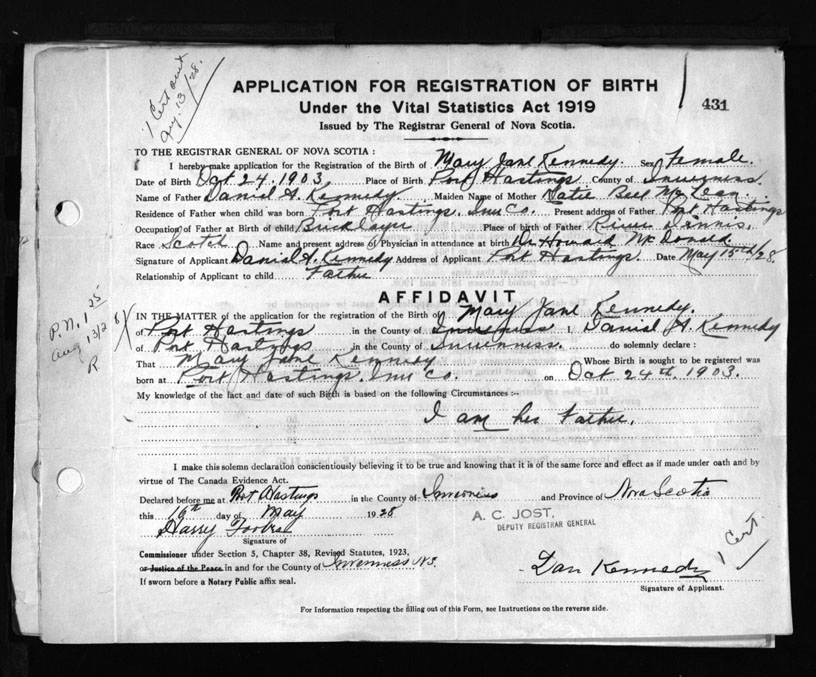 1 Cert out
Aug. 13/28.
APPLICATION FOR REGISTRATION OF BIRTH
Under the Vital Statistics Act 1919
Issued by The Registrar General of Nova Scotia.
431
TO THE REGISTRAR GENERAL OF NOVA SCOTIA :
I hereby make application for the Registration of the Birth of Mary Jane Kennedy. Sex Female.
Date of Birth Oct 24. 1903. Place of Birth Port Hastings County of Inverness.
Name of Father Daniel A. Kennedy. Maiden Name of Mother Katie Bell McLean.
Residence of Father when child was born Port Hastings. Inv Co. Present address of Father Port Hastings
Occupation of Father at Birth of child Bricklayer Place of birth of Father River Dennis.
Race Scotch Name and present address of Physician in attendance at birth Dr Howard McDonald
Signature of Applicant Daniel A. Kennedy Address of Applicant Port Hastings. Date May 15th/28.
Relationship of Applicant to child Father
AFFIDAVIT
IN THE MATTER of the application for the registration of the Birth of Mary Jane Kennedy.
of Port Hastings in the County of Inverness I, Daniel A. Kennedy
of Port Hastings in the County of Inverness. do solemnly declare :
That Mary Jane Kennedy Whose Birth is sought to be registered was
born at Port Hastings. Inv Co. on Oct 24th. 1903.
P.N. 1.25
Aug 13/28
R
My knowledge of the fact and date of such Birth is based on the following Circumstances :-
I am her Father.
I make this solemn declaration conscientiously believing it to be true and knowing that it is of the same force and effect as if made under oath and by
virtue of The Canada Evidence Act.
Declared before me at Port Hastings in the County of Inverness and Province of Nova Scotia
this 19th day of May 1928
A. C. JOST,
DEPUTY REGISTRAR GENERAL
Harry Forbes
Signature of
Commissioner under Section 5, Chapter 38, Revised Statutes, 1923,
or Justice of the Peace in and for the County of Inverness N.S.
If sworn before a Notary Public affix seal.
Dan Kennedy
Signature of Applicant.
1 Cert.
For Information respecting the filling out of this Form, see Instructions on the reverse side.